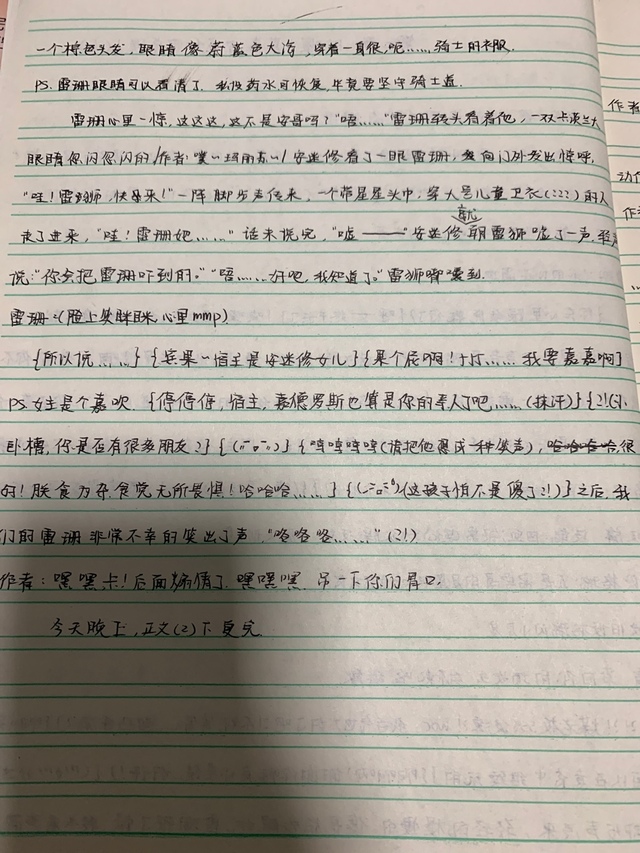 一个棕色头发，眼睛像蔚蓝色大海，穿着一身很，呃……骑士的衣服.
PS.雷珊眼睛可以看清了.私设药水可恢复，毕竟要坚守骑士道.
雷珊心里一惊，这这这，这不是安哥吗？"唔……"雷珊转头看着他，一双卡姿兰大
眼睛忽闪忽闪的/作者:噗~玛丽苏~/安迷修看了一眼雷珊，就向门外发出惊呼，
"哇！雷狮，快来！"一阵脚步声传来，一个带星星头巾，穿大号儿童卫衣(???)的人
走了进来，"哇！雷珊她……"话未说完，"嘘——"安迷修就朝雷狮嘘了一声，轻声
说："你会把雷珊吓到的。""唔……好吧，我知道了。"雷狮嘟囔到.
雷珊:(脸上笑眯眯，心里mmp)
{所以说……}{宾果~宿主是安迷修女儿}{果个屁啊！卡卡……我要嘉嘉啊}
PS.女主是个嘉吹.{停停停，宿主，嘉德罗斯也算是你的亲人了吧……(抹汗)}{?!(小
卧槽，你是否有很多朋友?}{呜呜呜呜(请把他念成一种笑声)，哈哈哈哈，很
的！朕食为杂食党无所畏惧！哈哈哈……}{(这孩子怕不是傻了?!)}之后，我
们的雷珊非常不幸的笑出了声，"咯咯咯……"(?!)
作者：嘿嘿卡！后面编情了.嘿嘿嘿.吊一下你们胃口.
今天晚上，正文(2)下更完.
作者
动
作